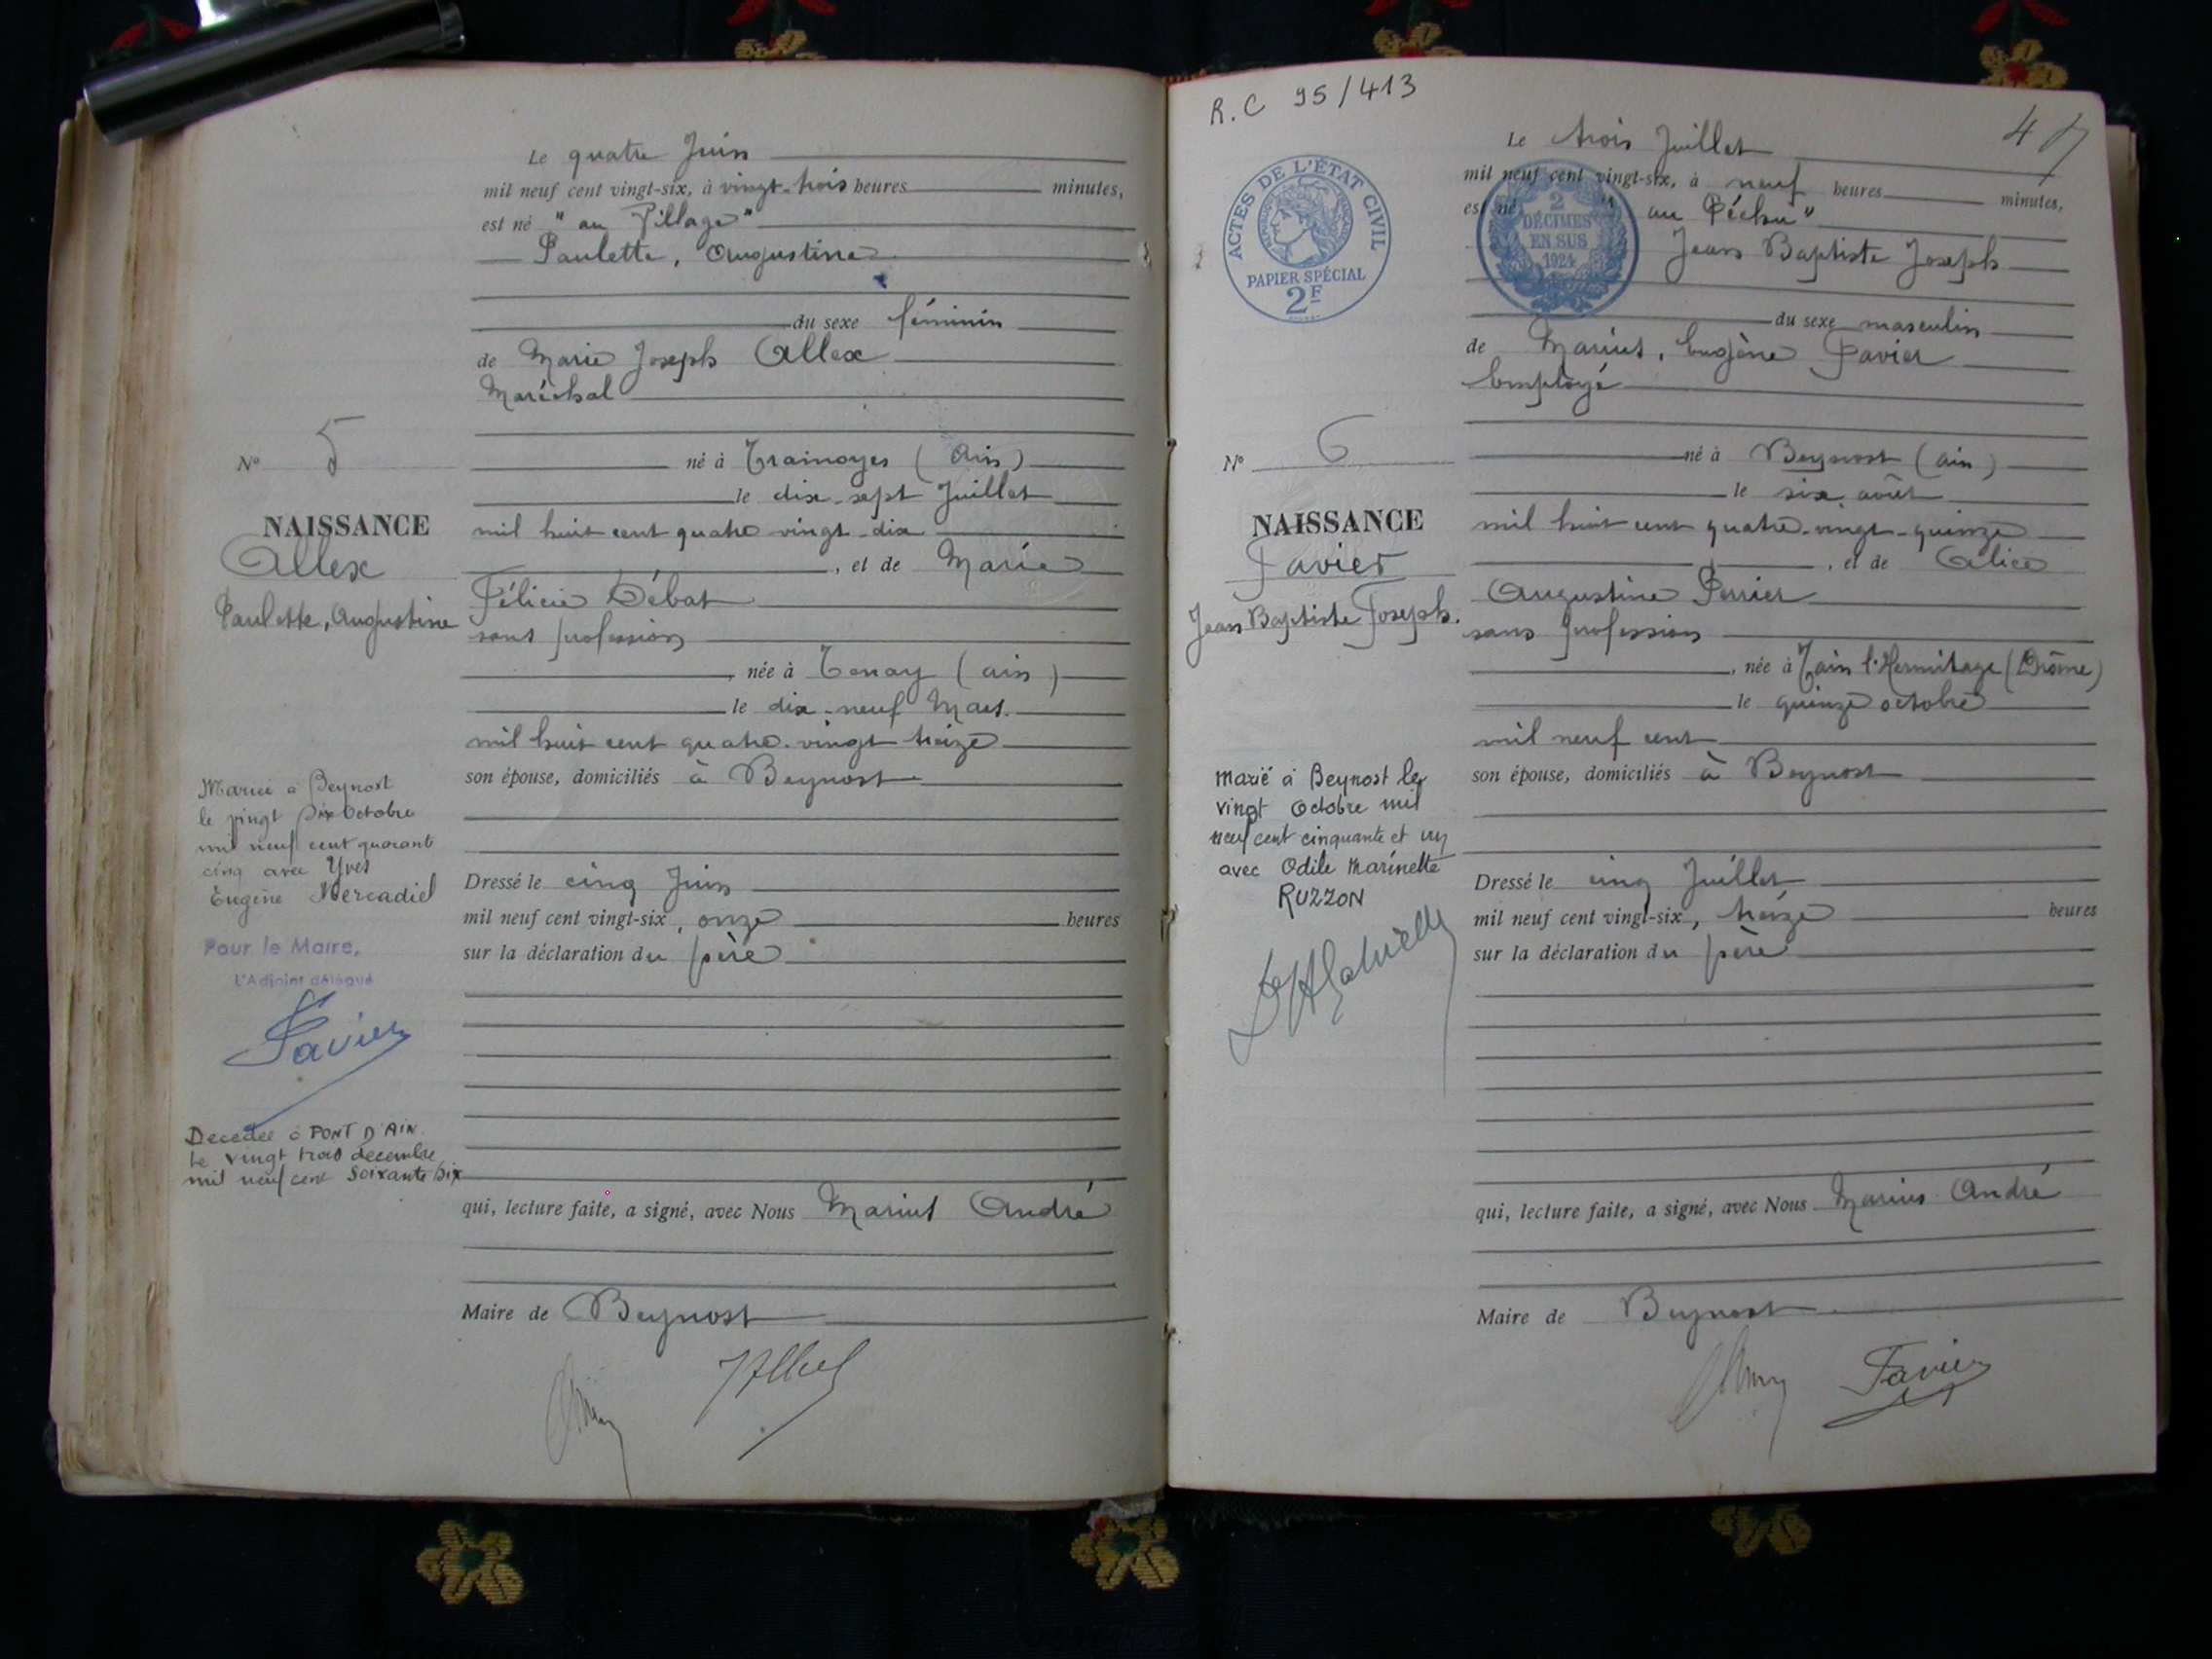 Le quatre Juin
mil neuf cent vingt-six, à vingt-trois heures minutes,
est né "au Village"
Paulette, Augustine
du sexe féminin
de Marie Joseph Allex
Maréchal
né à Tramoyes (Ain)
le dix-sept Juillet
mil huit cent quatre vingt-dix
, et de Marie
Félicie Débat
sans profession
, née à Tenay (ain)
le dix-neuf Mars
mil huit cent quatre-vingt treize
son épouse, domiciliés à Beynost
Dressé le cinq Juin
mil neuf cent vingt-six, onze heures
sur la déclaration du père
qui, lecture faite, a signé, avec Nous Marius André
Maire de Beynost
N° 5
NAISSANCE
Allex
Paulette, Augustine
Mariée à Beynost
le vingt six Octobre
mil neuf cent quarante
cinq avec Yves
Eugène Mercadiel
Pour le Maire,
L'Adjoint délégué
Favier
Decedée à PONT D'AIN
Le vingt trois decembre
mil neuf cent soixante dix
R.C 95/413
47
ACTES DE L'ÉTAT CIVIL
PAPIER SPÉCIAL
2F
2
DÉCIMES
EN SUS
1924
Le trois Juillet
mil neuf cent vingt-six, à neuf heures minutes,
est né "au Péchu"
Jean Baptiste Joseph
du sexe masculin
de Marius, Eugène Favier
Employé
né à Beynost (ain)
le six août
mil huit cent quatre-vingt-quinze
, et de Alice
Augustine Perrier
sans profession
, née à Tain l'Hermitage (Drôme)
le quinze octobre
mil neuf cent
son épouse, domiciliés à Beynost
Dressé le cinq Juillet
mil neuf cent vingt-six, treize heures
sur la déclaration du père
qui, lecture faite, a signé, avec Nous Marius André
Maire de Beynost
Favier
N° 6
NAISSANCE
Favier
Jean Baptiste Joseph.
Marié à Beynost le
vingt Octobre mil
neuf cent cinquante et un
avec Odile Marinette
RUZZON